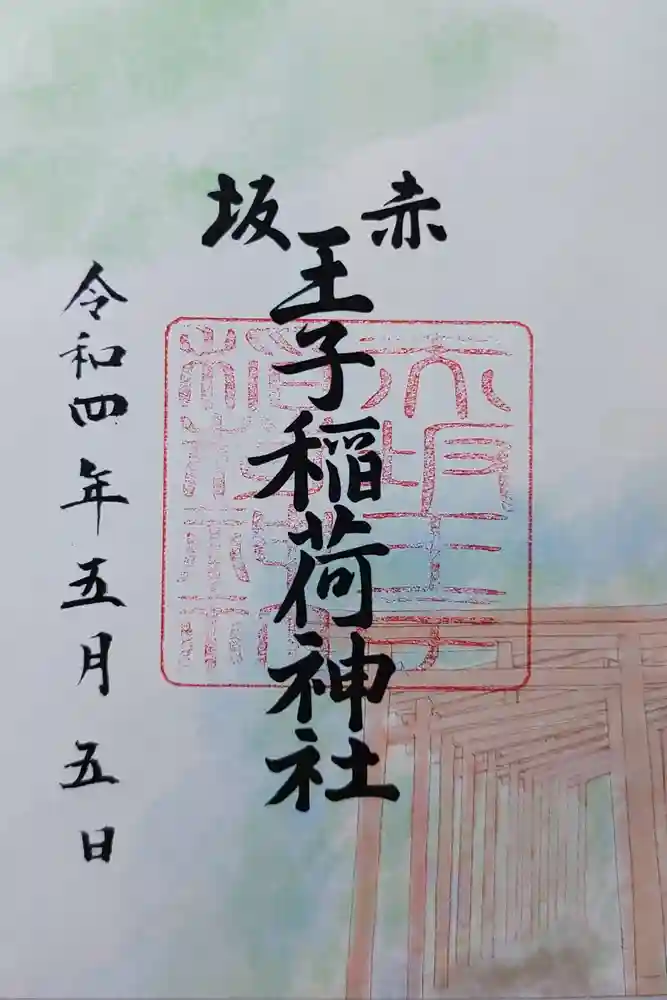 赤坂
王子稲荷神社
令和四年五月五日